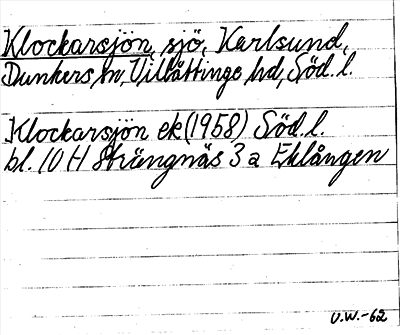 Klockarsjön, sjö, Karlsund,
Dunkers sn, Villåttinge hd, Söd. l.
Klockarsjön ek (1958) Söd. l.
bl. 10 H Strängnäs 3 a Eklången
U.W.-62